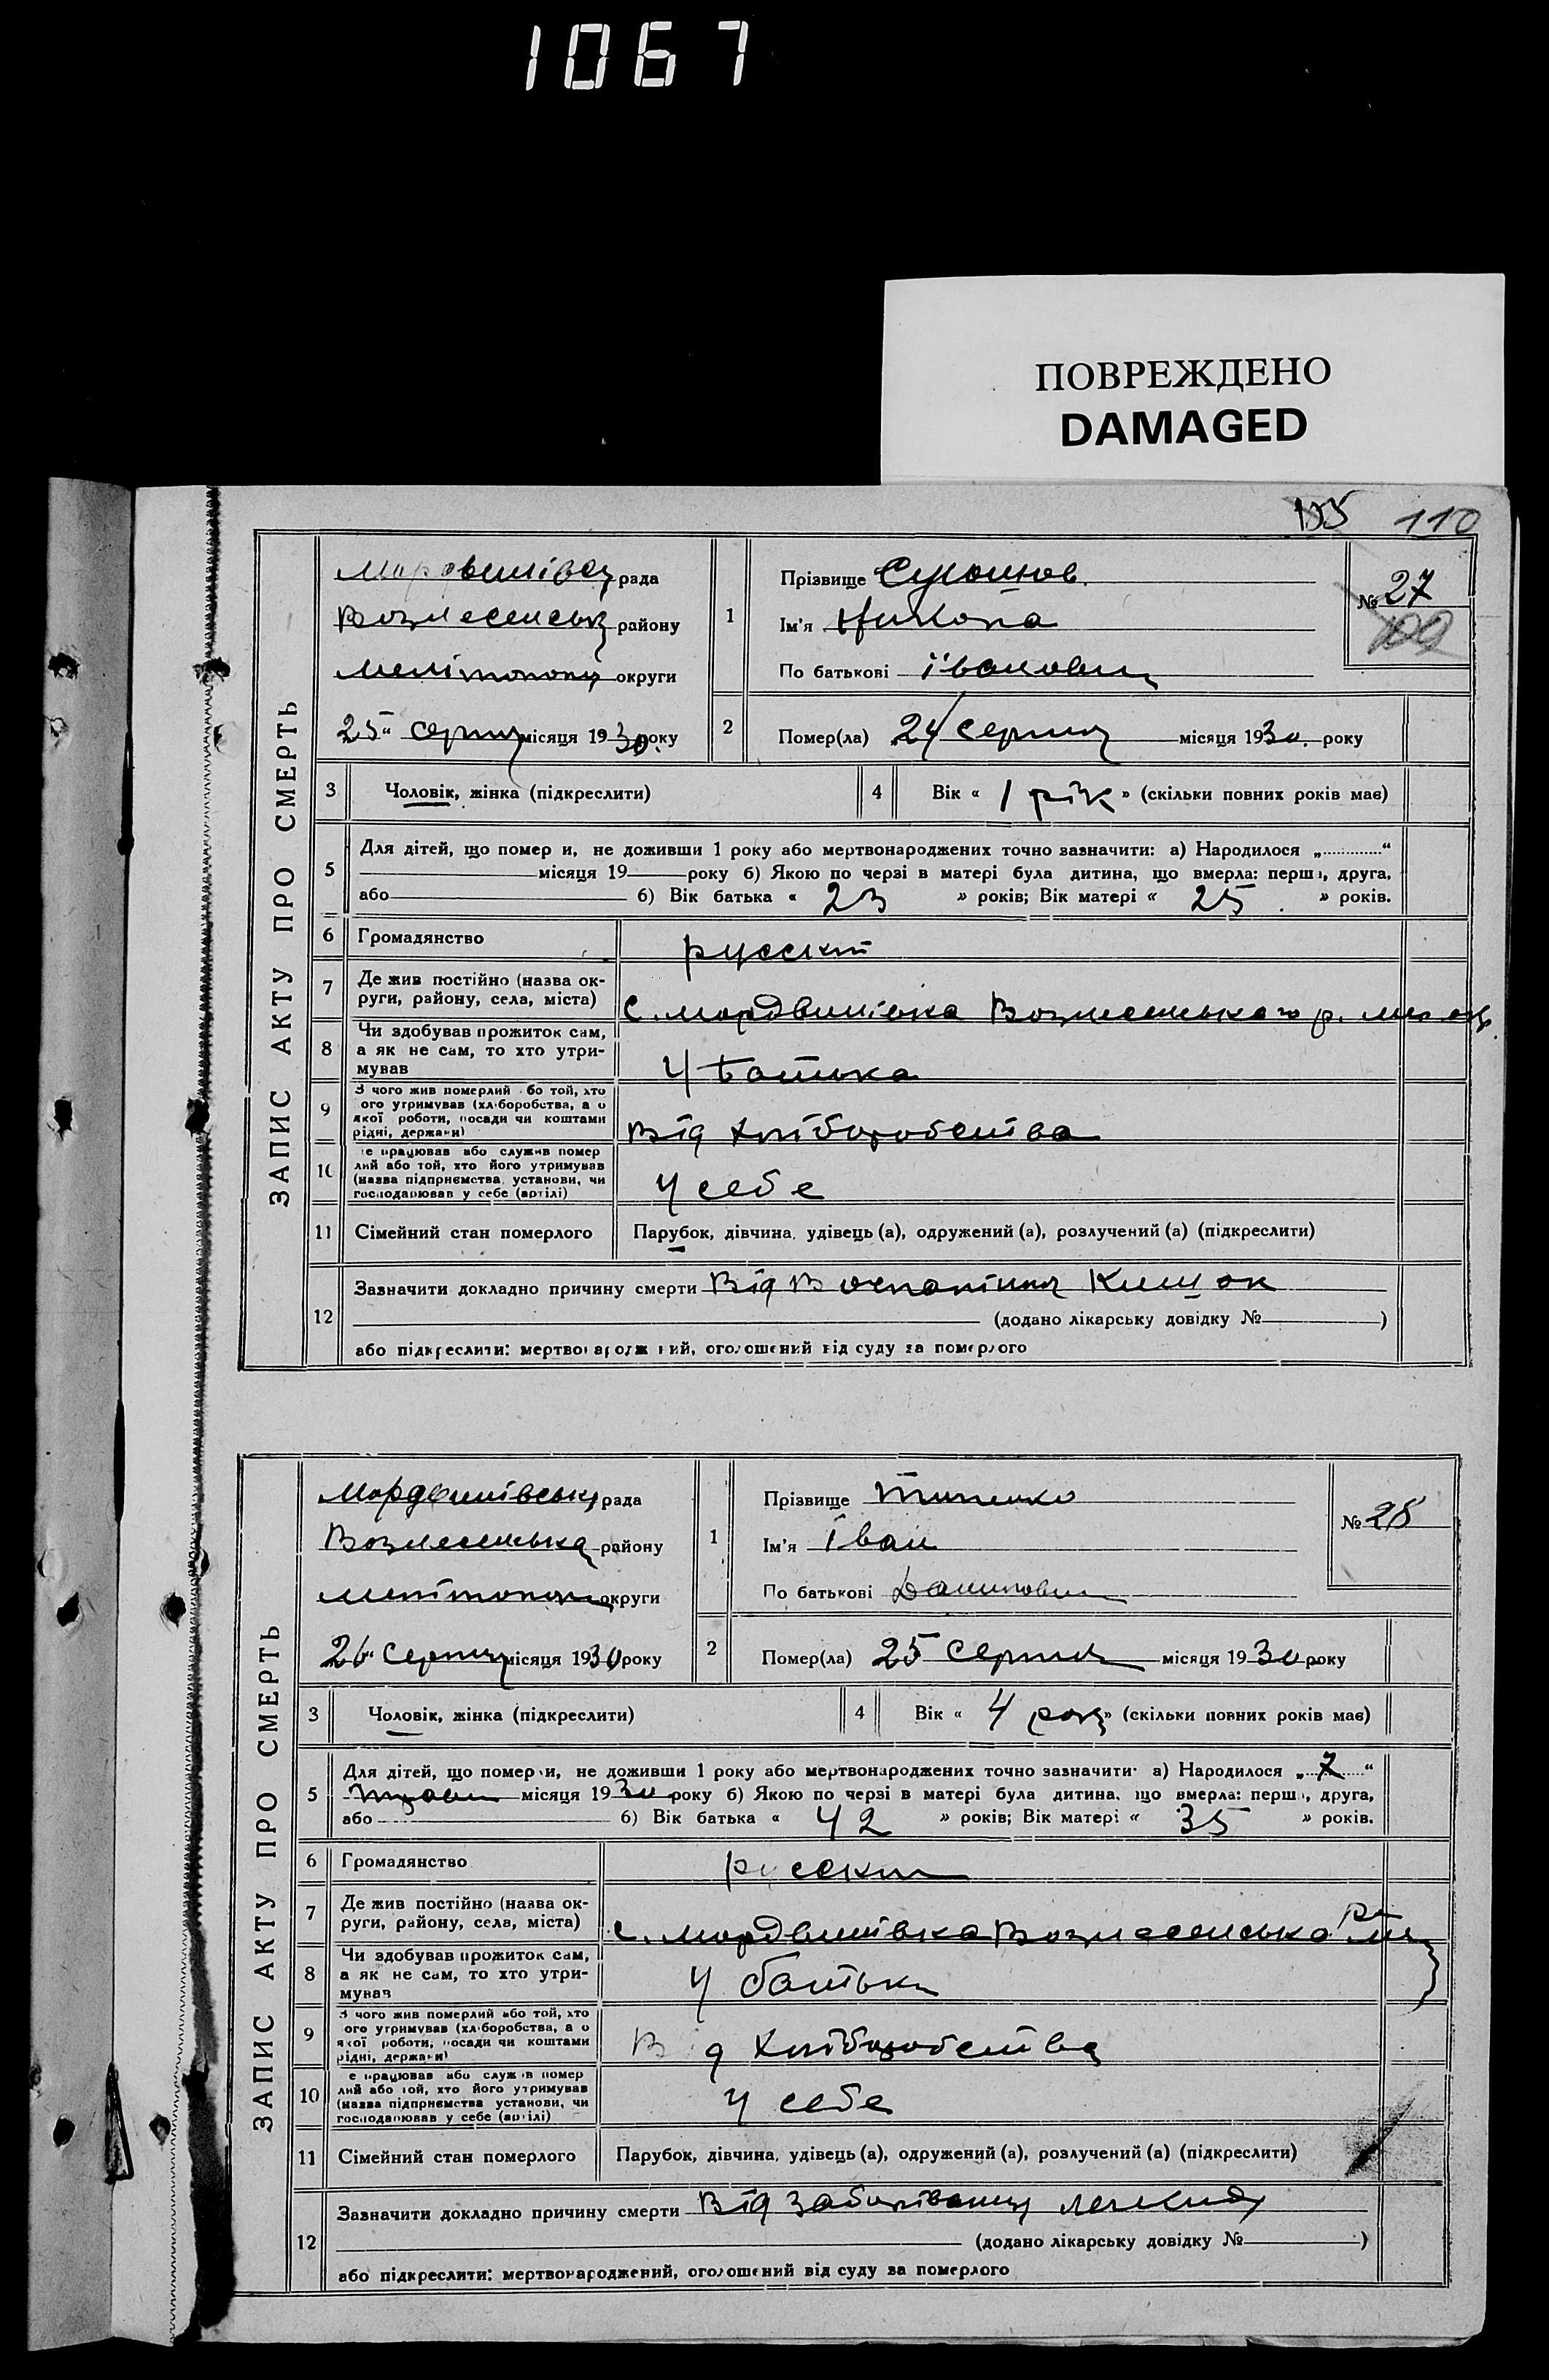 1067
ПОВРЕЖДЕНО
DAMAGED
110
ЗАПИС АКТУ ПРО СМЕРТЬ
рада
району
округи
25 “ серпня місяця 1930 року
1
Прізвище
Ім'я Никола
По батькові Іванович
№ 27
2
Помер(ла) 24 серпня місяця 1930. року
3
Чоловік, жінка (підкреслити)
4
Вік « 1 рік » (скільки повних років має)
5
Для дітей, що помер и, не доживши 1 року або мертвонароджених точно зазначити: а) Народилося „ “
місяця 19 року б) Якою по черзі в матері була дитина, що вмерла: перш , друга,
або б) Вік батька « 23 » років; Вік матері « 25 » років.
6
Громадянство
русский
7
Де жив постійно (назва ок-
руги, району, села, міста)
с. Мордвинівка Вознесенського р.
8
Чи здобував прожиток сам,
а як не сам, то хто утри-
мував
У батька
9
З чого жив померлий бо той, хто
ого утримував (хліборобства, а о
якої роботи, посади чи коштами
рідні, держави)
Від хліборобства
10
е працював або служив помер
лий або той, хто його утримував
(назва підприємства, установи, чи
господарював у себе (артілі)
У себе
11
Сімейний стан померлого
Парубок, дівчина, удівець (а), одружений (а), розлучений (а) (підкреслити)
12
Зазначити докладно причину смерти Від Воспаління Кишок
(додано лікарську довідку № )
або підкреслити: мертвонароджений, оголошений від суду за померлого
ЗАПИС АКТУ ПРО СМЕРТЬ
рада
району
округи
26 “ серпня місяця 1930 року
1
Прізвище
Ім'я Іван
По батькові Данилович
№ 28
2
Помер(ла) 25 серпня місяця 1930 року
3
Чоловік, жінка (підкреслити)
4
Вік « 4 » (скільки повних років має)
5
Для дітей, що помер и, не доживши 1 року або мертвонароджених точно зазначити: а) Народилося „ 7 “
місяця 1930 року б) Якою по черзі в матері була дитина, що вмерла: перш , друга,
або б) Вік батька « 42 » років; Вік матері « 35 » років.
6
Громадянство
русский
7
Де жив постійно (назва ок-
руги, району, села, міста)
с. Мордвинівка Вознесенська
8
Чи здобував прожиток сам,
а як не сам, то хто утри-
мував
У батька
9
З чого жив померлий або той, хто
ого утримував (хліборобства, а о
якої роботи, посади чи коштами
рідні, держави)
Від хліборобства
10
е працював або служив помер
лий або той, хто його утримував
(назва підприємства установи, чи
господарював у себе (артілі)
У себе
11
Сімейний стан померлого
Парубок, дівчина, удівець (а), одружений (а), розлучений (а) (підкреслити)
12
Зазначити докладно причину смерти Від
(додано лікарську довідку № )
або підкреслити: мертвонароджений, оголошений від суду за померлого